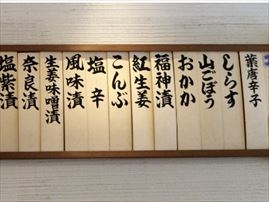 葉唐辛子
しらす
山ごぼう
おかか
福神漬
紅生姜
こんぶ
塩辛
風味漬
生姜味噌漬
奈良漬
塩紫漬